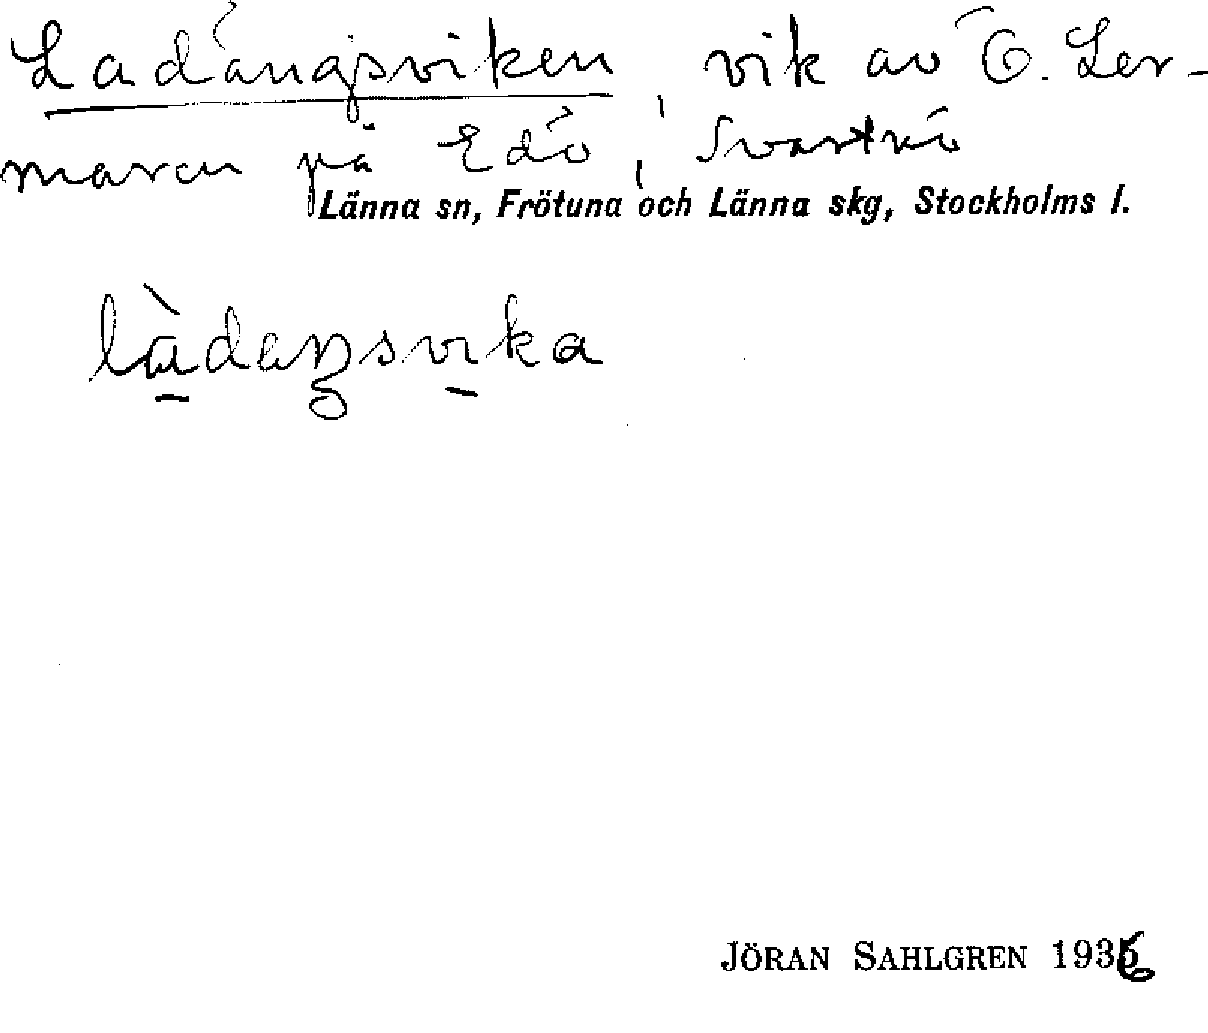 Ladängsviken, vik av Ö. Ler-
maren på Edö, Svartnö
Länna sn, Frötuna och Länna skg, Stockholms l.
làdaŋsvika
JÖRAN SAHLGREN 1936